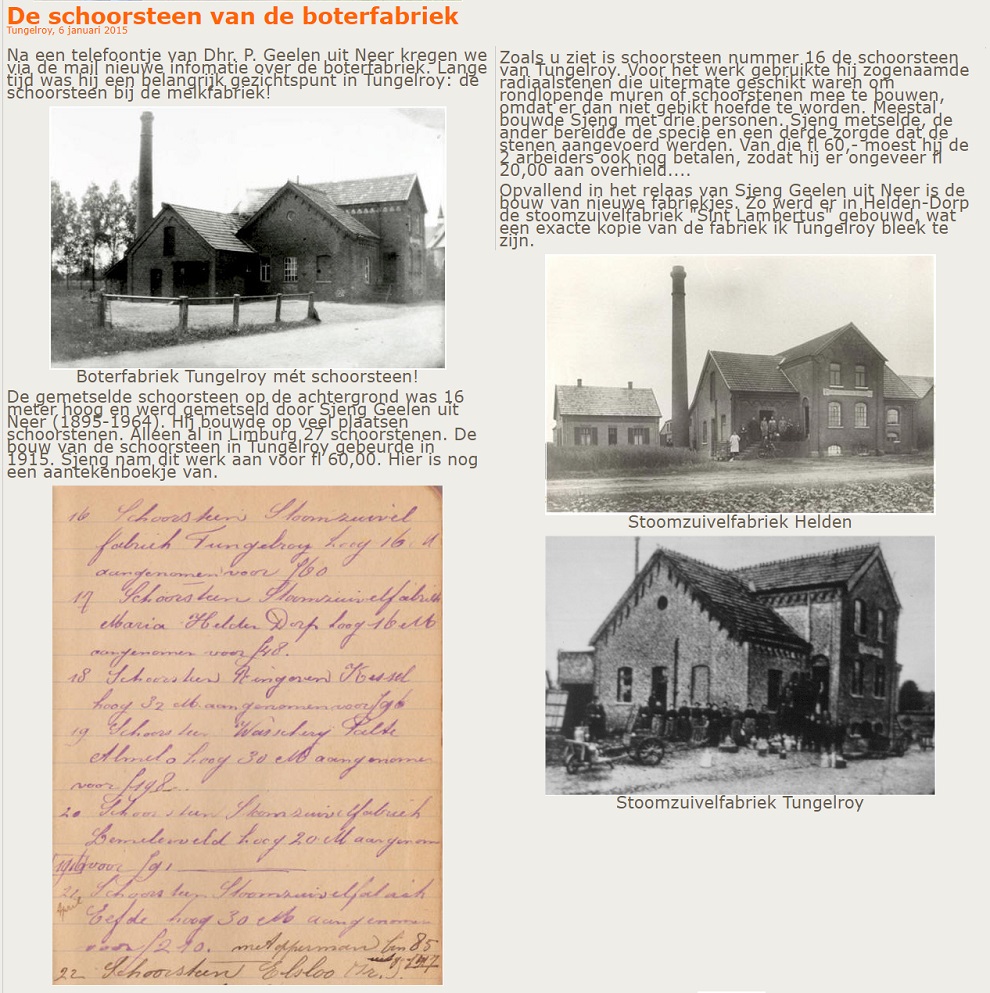 De schoorsteen van de boterfabriek
Tungelroy, 6 januari 2015
Na een telefoontje van Dhr. P. Geelen uit Neer kregen we
via de mail nieuwe infomatie over de boterfabriek. Lange
tijd was hij een belangrijk gezichtspunt in Tungelroy: de
schoorsteen bij de melkfabriek!
Boterfabriek Tungelroy mét schoorsteen!
De gemetselde schoorsteen op de achtergrond was 16
meter hoog en werd gemetseld door Sjeng Geelen uit
Neer (1895-1964). Hij bouwde op veel plaatsen
schoorstenen. Alleen al in Limburg 27 schoorstenen. De
bouw van de schoorsteen in Tungelroy gebeurde in
1915. Sjeng nam dit werk aan voor fl 60,00. Hier is nog
een aantekenboekje van.
16 Schoorsteen Stoomzuivel
fabriek Tungelroy hoog 16 M
aangenomen voor f60
17 Schoorsteen Stoomzuivelfabriek
Maria Helden Dorp hoog 16 M
aangenomen voor f48.
18 Schoorsteen Ringoven Kessel
hoog 32 M. aangenomen voor f96
19 Schoorsteen Wasscherij Palte
Almelo hoog 30 M aangenome
voor f198.
20 Schoorsteen Stoomzuivelfabriek
Lemelerveld hoog 20 M aangenom
1916 voor f91
21 Schoorsteen Stoomzuivelfabriek
April
Eefde hoog 30 M aangenomen
voor f210. met opperman 85
22 Schoorsteen Elsloo
Zoals u ziet is schoorsteen nummer 16 de schoorsteen
van Tungelroy. Voor het werk gebruikte hij zogenaamde
radiaalstenen die uitermate geschikt waren om
rondlopende muren of schoorstenen mee te bouwen,
omdat er dan niet gebikt hoefde te worden. Meestal
bouwde Sjeng met drie personen. Sjeng metselde, de
ander bereidde de specie en een derde zorgde dat de
stenen aangevoerd werden. Van die fl 60,- moest hij de
2 arbeiders ook nog betalen, zodat hij er ongeveer fl
20,00 aan overhield....
Opvallend in het relaas van Sjeng Geelen uit Neer is de
bouw van nieuwe fabriekjes. Zo werd er in Helden-Dorp
de stoomzuivelfabriek "Sint Lambertus" gebouwd, wat
een exacte kopie van de fabriek ik Tungelroy bleek te
zijn.
Stoomzuivelfabriek Helden
Stoomzuivelfabriek Tungelroy